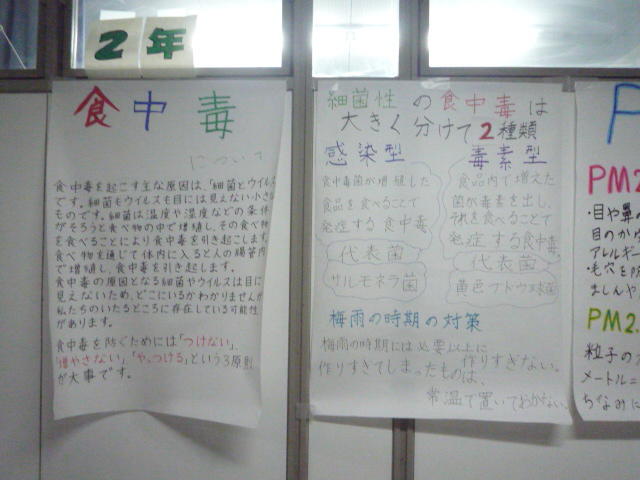 2年
食中毒
について
食中毒を起こす主な原因は、「細菌とウイルス
です。細菌もウイルスも目には見えない小さ
ものです。細菌は温度や湿度などの条件
がそろうと食べ物の中で増殖し、その食べ物
を食べることにより食中毒を引き起こします。
食べ物を通じて体内に入ると人の腸管内
で増殖し、食中毒を引き起します。
食中毒の原因となる細菌やウイルスは目に
見えないため、どこにいるかわかりませんが
私たちのいたるところに存在している可能性
があります。
食中毒を防ぐためには「つけない」
「増やさない」「やっつける」という3原則
が大事です。
細菌性の食中毒は
大きく分けて2種類
感染型
食中毒菌が増殖した
食品を食べることで
発症する食中毒
代表菌
サルモネラ菌
毒素型
食品内で増えた
菌が毒素を出し、
それを食べることで
発症する食中毒
代表菌
黄色ブドウ球菌
梅雨の時期の対策
梅雨の時期には必要以上に
作りすぎない。
作りすぎてしまったものは、
常温で置いておかない。
P
PM2.
・目や鼻の
目のかゆ
アレルギー
・毛穴を防
ましんや
PM2.
粒子の
メートル
ちなみに